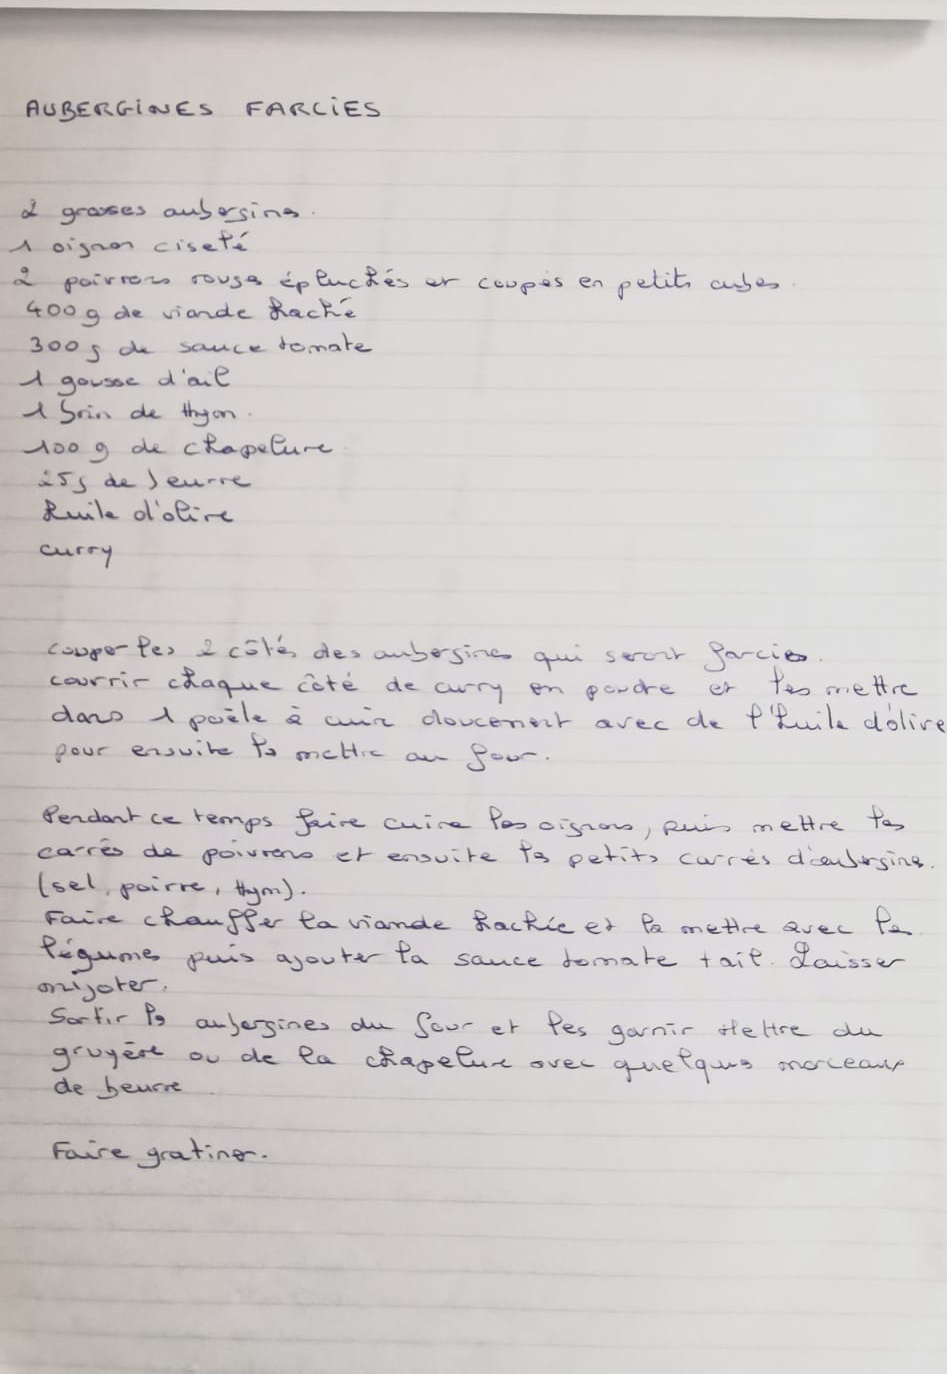 AUBERGINES FARCIES
2 grosses aubergines.
1 oignon ciselé
2 poivrons rouges épluchés et coupés en petits cubes.
400g de viande haché
300g de sauce tomate
1 gousse d'ail
1 brin de thym.
100 g de chapelure
25g de beurre
huile d'olive
curry
couper les 2 côtés des aubergines qui seront farcies.
couvrir chaque côté de curry en poudre et les mettre
dans 1 poële à cuir doucement avec de l'huile d'olive
pour ensuite les mettre au four.
Pendant ce temps faire cuire les oignons, puis mettre les
carrés de poivrons et ensuite les petits carrés d'aubergine.
(sel, poivre, thym).
Faire chauffer la viande hachée et la mettre avec les
légumes puis ajouter la sauce tomate + ail. Laisser
mijoter.
Sortir les aubergines du four et les garnir Mettre du
gruyère ou de la chapelure avec quelques morceaux
de beurre.
Faire gratiner.